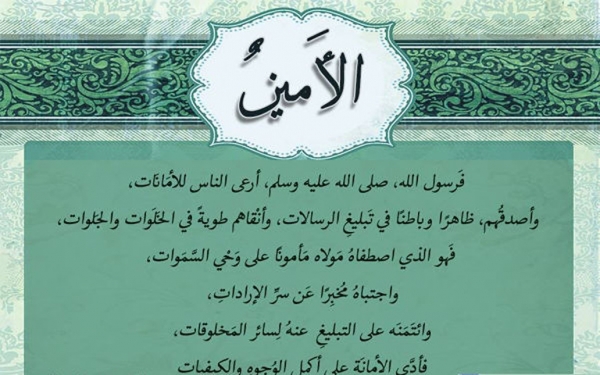 الأَمينُ
فَرسول الله، صلى الله عليه وسلم، أرعى الناس للأمَانَات،
وأصدقُهم، ظاهرًا وباطنًا في تَبليغِ الرسالات، وأنْقاهم طويةً في الخَلَوات والجَلوات،
فَهو الذي اصطفاهُ مَولاه مَأمونًا على وَحْي السَّمَوات،
واجتباهُ مُخبِرًا عَن سرِّ الإراداتِ،
وائتَمَنَه على التبليغِ عنهُ لِسائر المَخلوقات،
فأدَّى الأمانَة على أكملِ الوُجوهِ والكيفيات